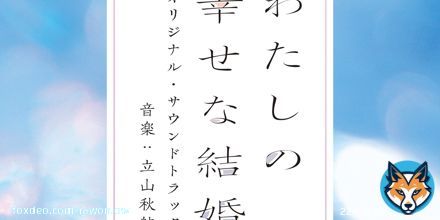 わたしの
幸せな結婚
オリジナル・サウンドトラック
音楽：立山秋